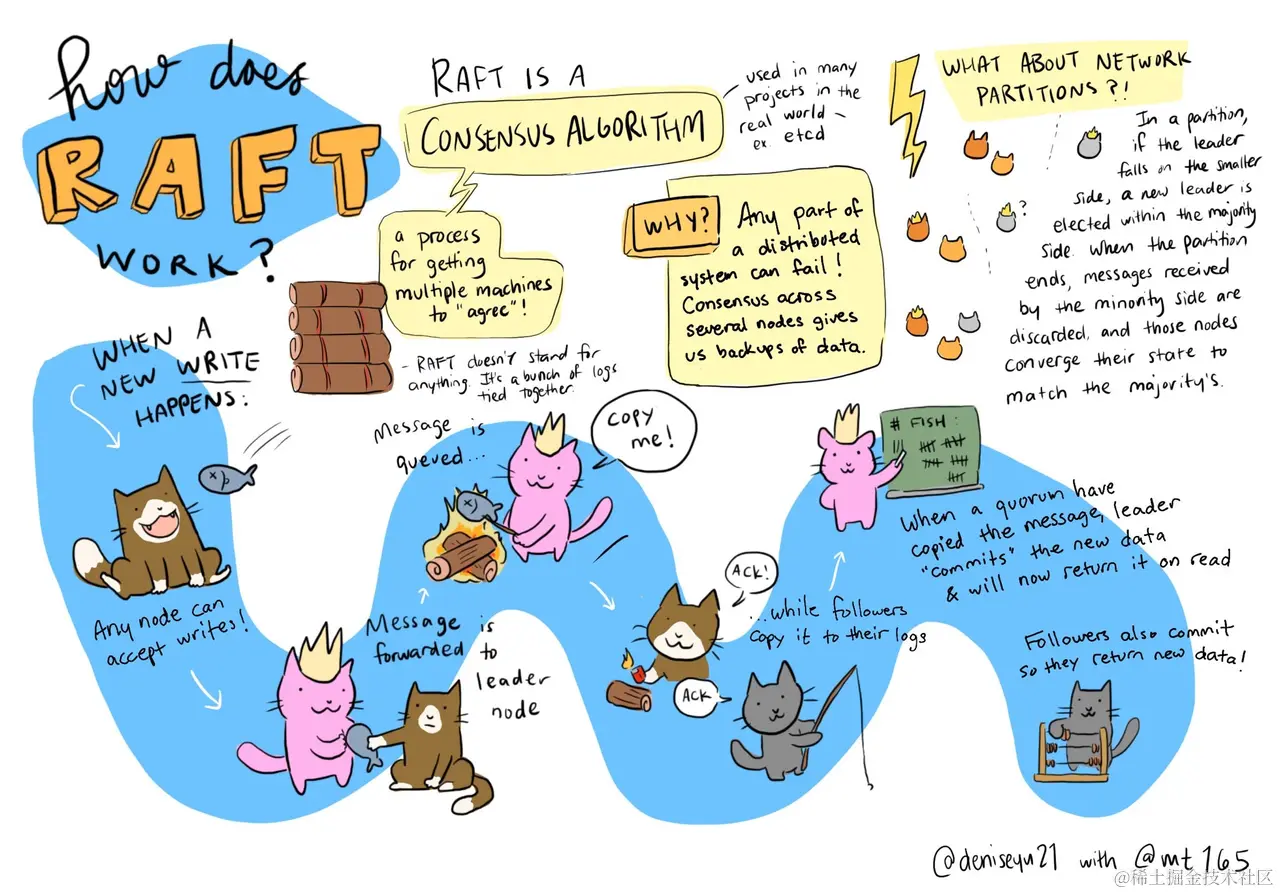 how does
RAFT
WORK?
RAFT IS A
CONSENSUS ALGORITHM
used in many
projects in the
real world –
ex. etcd
a process
for getting
multiple machines
to "agree"!
- RAFT doesn't stand for
anything. It's a bunch of logs
tied together.
WHY?
Any part of
a distributed
system can fail!
Consensus across
several nodes gives
us backups of data.
WHAT ABOUT NETWORK
PARTITIONS?!
In a partition,
if the leader
falls on the smaller
side, a new leader is
elected within the majority
side. When the partition
ends, messages received
by the minority side are
discarded, and those nodes
converge their state to
match the majority's.
?
WHEN A
NEW WRITE
HAPPENS:
Any node can
accept writes!
Message is
forwarded to
leader
node
Message is
queued...
COPY
ME!
ACK!
ACK
...while followers
copy it to their logs
# FISH:
When a quorum have
copied the message, leader
"commits" the new data
& will now return it on read
Followers also commit
so they return new data!
@deniseyu21 with @mt165
@稀土掘金技术社区